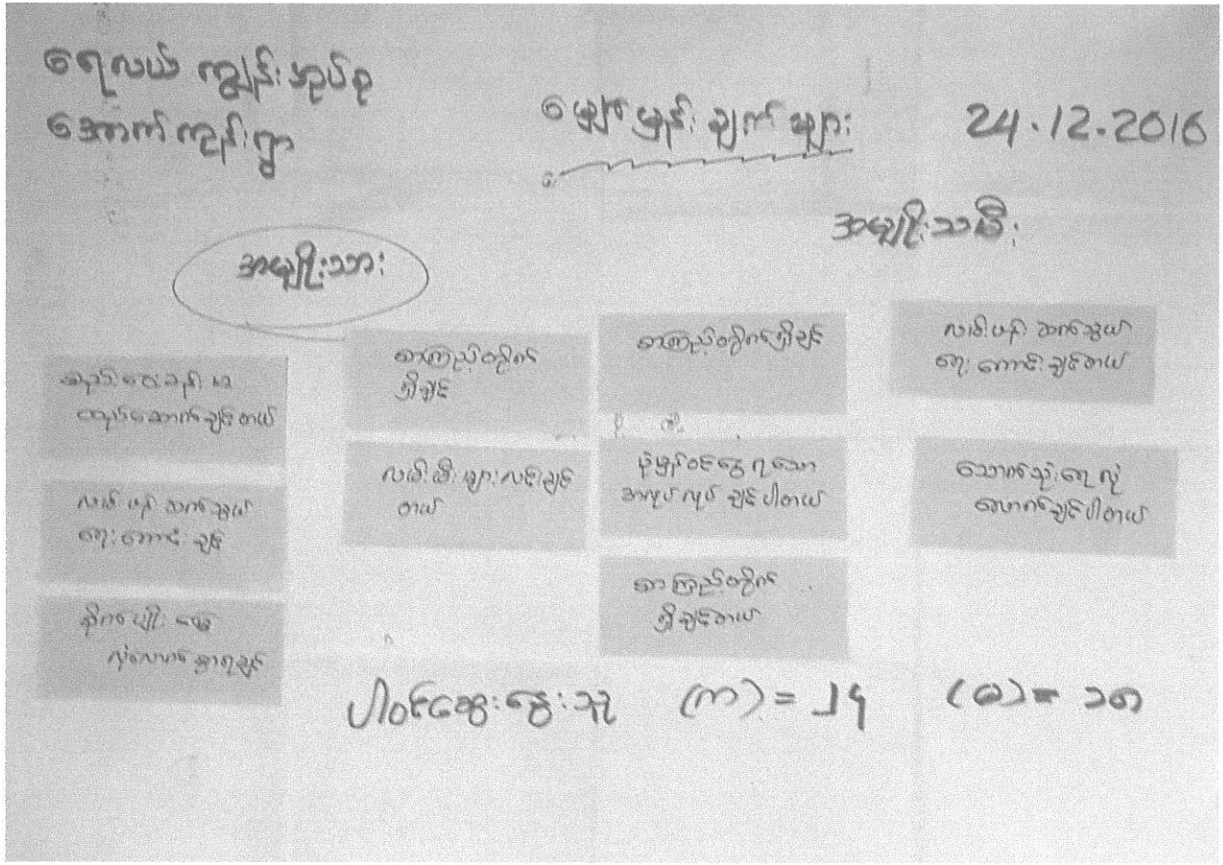 ရေလယ်ကျွန်းအုပ်စု
အောက်ကျွန်းရွာ
မျှော်မှန်းချက်များ
24.12.2016
အမျိုးသား
အမျိုးသမီး
ဆောက်ချင်တယ်
လမ်းပန်းဆက်သွယ်
ရေးကောင်းချင်
စိုက်ပျိုးမြေ
လုံလောက်စွာရချင်
စာကြည့်တိုက်
ရှိချင်
လမ်းမီးများလင်းချင်
တယ်
စာကြည့်တိုက်ရှိချင်
ပုံမှန်ဝင်ငွေရသော
အလုပ်လုပ်ချင်ပါတယ်
စာကြည့်တိုက်
ရှိချင်တယ်
လမ်းပန်းဆက်သွယ်
ရေးကောင်းချင်တယ်
သောက်သုံးရေလုံ
လောက်ချင်ပါတယ်
ပါဝင်ဆွေးနွေးသူ (ကျား) = ၂၄ (မ) = ၁၈